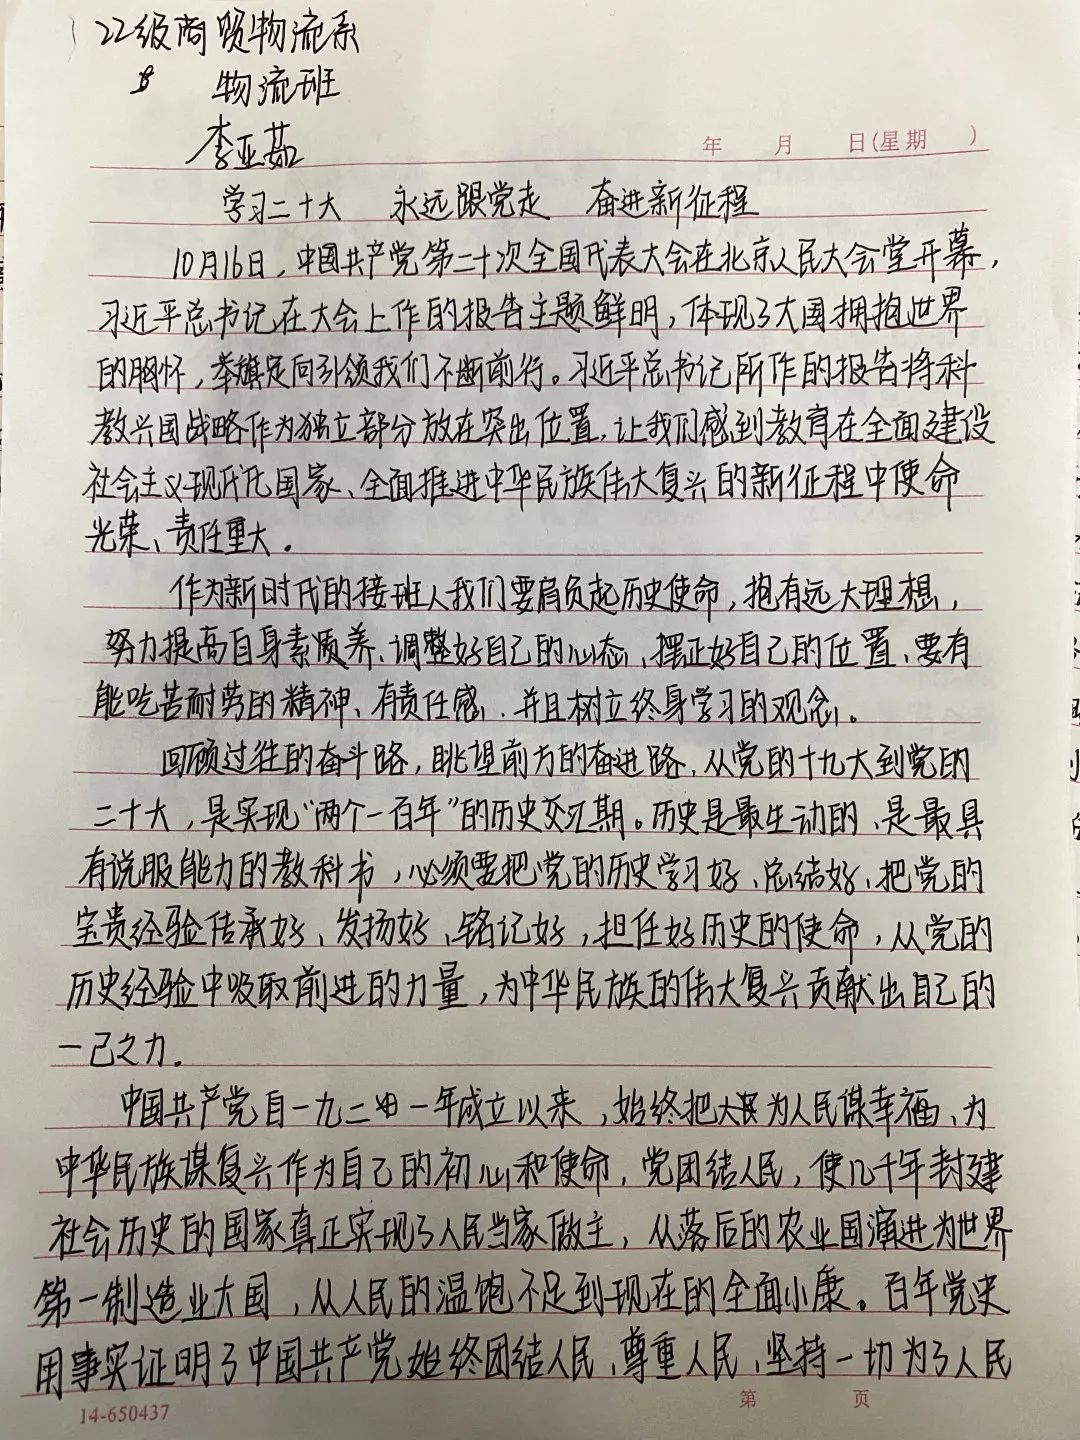 22级商贸物流系
物流班
李亚茹
年 月 日(星期 )
学习二十大 永远跟党走 奋进新征程
10月16日，中国共产党第二十次全国代表大会在北京人民大会堂开幕，
习近平总书记在大会上作的报告主题鲜明，体现了大国拥抱世界
的胸怀，举旗定向引领我们不断前行。习近平总书记所作的报告将科
教兴国战略作为独立部分放在突出位置，让我们感到教育在全面建设
社会主义现代化国家、全面推进中华民族伟大复兴的新征程中使命
光荣、责任重大。
作为新时代的接班人我们要肩负起历史使命，抱有远大理想，
努力提高自身素质养、调整好自己的心态、摆正好自己的位置、要有
能吃苦耐劳的精神、有责任感、并且树立终身学习的观念。
回顾过往的奋斗路，眺望前方的奋进路，从党的十九大到党的
二十大，是实现“两个一百年”的历史交汇期。历史是最生动的、是最具
有说服能力的教科书，必须要把党的历史学习好、总结好、把党的
宝贵经验传承好、发扬好、铭记好，担任好历史的使命，从党的
历史经验中吸取前进的力量，为中华民族的伟大复兴贡献出自己的
一己之力。
中国共产党自一九二一年成立以来，始终把为人民谋幸福、为
中华民族谋复兴作为自己的初心和使命，党团结人民，使几千年封建
社会历史的国家真正实现了人民当家做主，从落后的农业国演进为世界
第一制造业大国，从人民的温饱不足到现在的全面小康。百年党史
用事实证明了中国共产党始终团结人民、尊重人民、坚持一切为了人民
14-650437 第 页